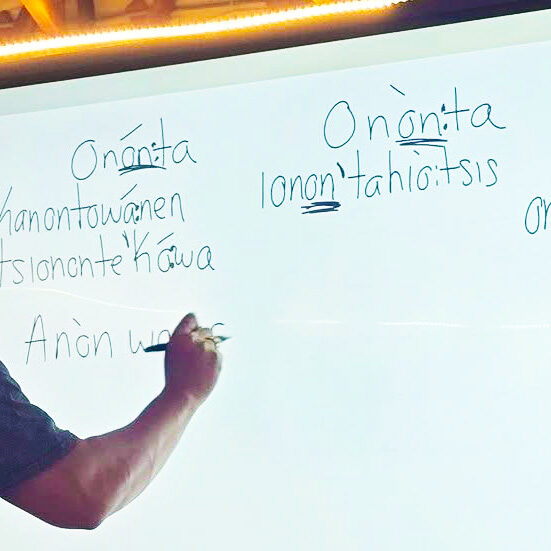 Onón:ta
Kanontowá:nen
tsiononte'kó:wa
Anòn
Onòn:ta
Ionon'tahiò:tsis